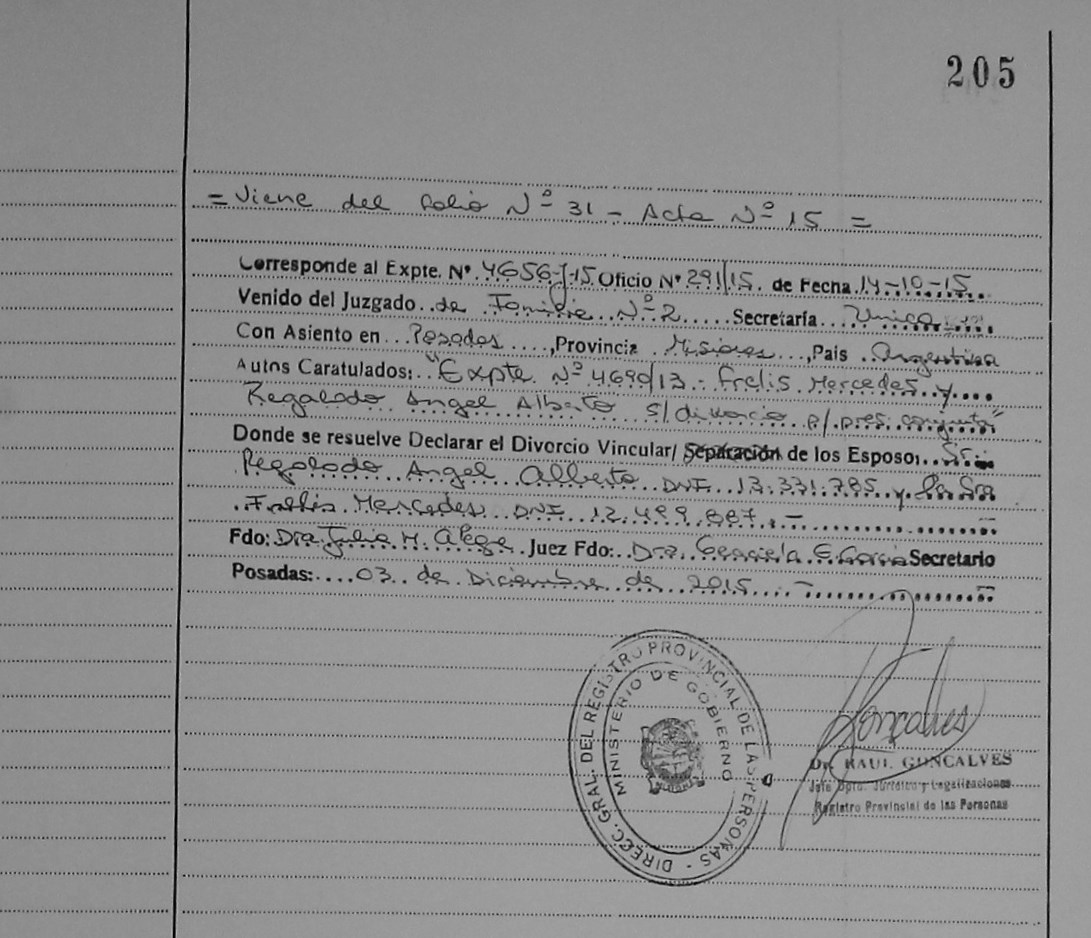 205
= Viene del folio Nº 31 - Acta Nº 15 =
Corresponde al Expte. Nº 4656-J-15 Oficio Nº 291/15. de Fecha 14-10-15
Venido del Juzgado de Familia Nº 2 Secretaría Unica
Con Asiento en Posadas, Provincia Misiones, Pais Argentina
Autos Caratulados: "Expte. Nº 4690/13 - Mercedes y
Regalado Angel Alberto s/ divorcio p/ pres. conjunta"
Donde se resuelve Declarar el Divorcio Vincular/ Separación de los Esposos Sr.
Regalado Angel Alberto DNI 13.331.785 y la Sra
Mercedes DNI 12.499.887.-
Fdo: Dra Julia M. Alegre Juez Fdo: Dra. Graciela E. Garcia Secretario
Posadas: 03 de Diciembre de 2015.-
DIRECC. GRAL. DEL REGISTRO PROVINCIAL DE LAS PERSONAS -
MINISTERIO DE GOBIERNO
Gonçalves
Dr. RAUL GONCALVES
Jefe Dpto. Jurídico y Legalizaciones
Registro Provincial de las Personas